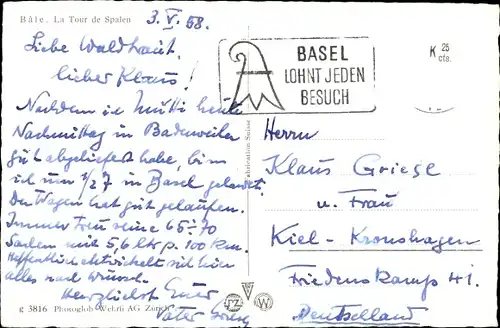 Bâle. La Tour de Spalen
3.V.58.
Liebe Waldtraut,
lieber Klaus!
Nachdem ich Mutti heute
Nachmittag in Badenweiler
gut abgeliefert habe, bin
ich um 1/27 in Basel gelandet.
Der Wagen hat gut gelaufen.
Immer seine 65-70
Sachen mit 5,6 ltr p. 100 km.
Hoffentlich entwickelt sich hier
alles nach Wunsch.
Herzlichst Euer
Vater
g 3816 Photoglob-Wehrli AG Zürich
Fabrication Suisse
BASEL
LOHNT JEDEN
BESUCH
K 25
cts.
Herrn
Klaus Griese
u. Frau
Kiel-Kronshagen
Friedenskamp 41.
Deutschland